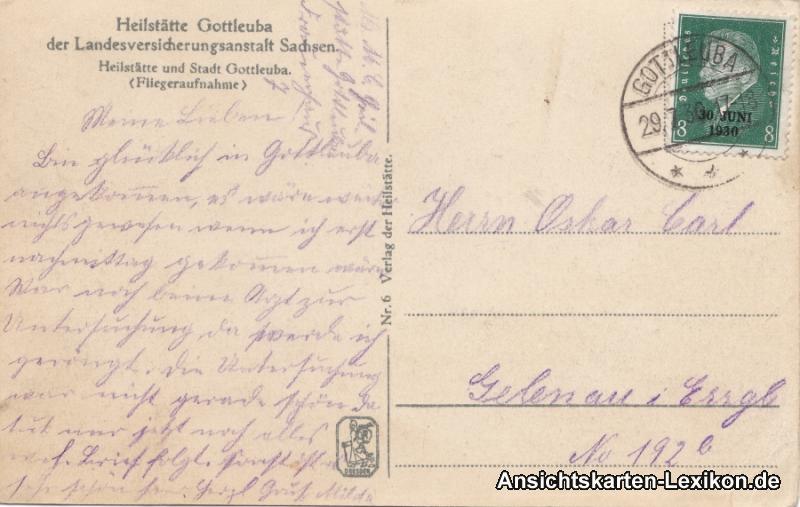 Heilstätte Gottleuba
der Landesversicherungsanstalt Sachsen.
Heilstätte und Stadt Gottleuba.
(Fliegeraufnahme)
Meine Lieben
Bin glücklich in Gottleuba
angekommen, es wäre weiter
nichts gewesen wenn ich erst
nachmittag gekommen wäre
War noch beim Arzt zur
Untersuchung da werde ich
geröngt. Die Untersuchung
war nicht gerade schön da
tut mir jetzt noch alles
weh. Brief folgt. sonst ist
sehr schön hier. Herzl Milda
Nr. 6 Verlag der Heilstätte.
DRESDEN
GOTTLEUBA
29
Deutsches Reich
30. JUNI
1930
8 8
Herrn Oskar Carl
Gelenau i Erzgb
No 192 b
Ansichtskarten-Lexikon.de